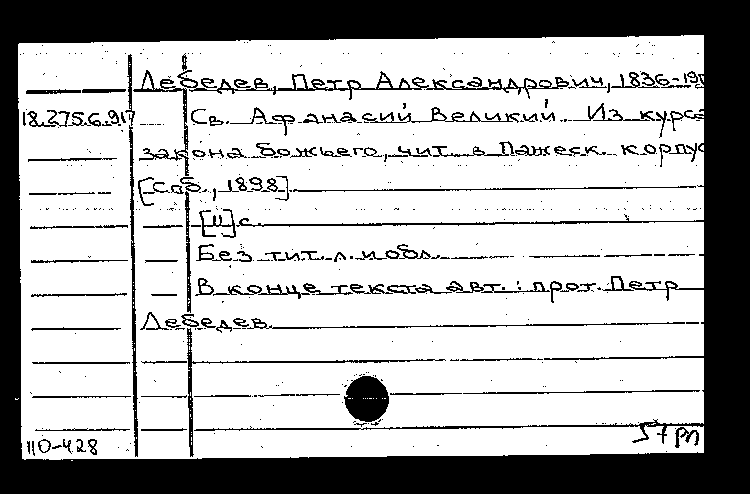 Лебедев, Петр Александрович, 1836-19
18.275.6.917 Св. Афанасий Великий. Из курса
закона божьего, чит. в Пажеск. корпус
[Спб., 1898].
[11] с.
Без тит. л. и обл.
В конце текста авт.: прот. Петр
Лебедев.
110-428